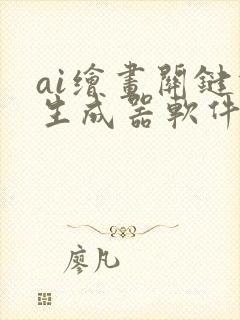 ai繪畫關鍵
生成器軟件
廖凡